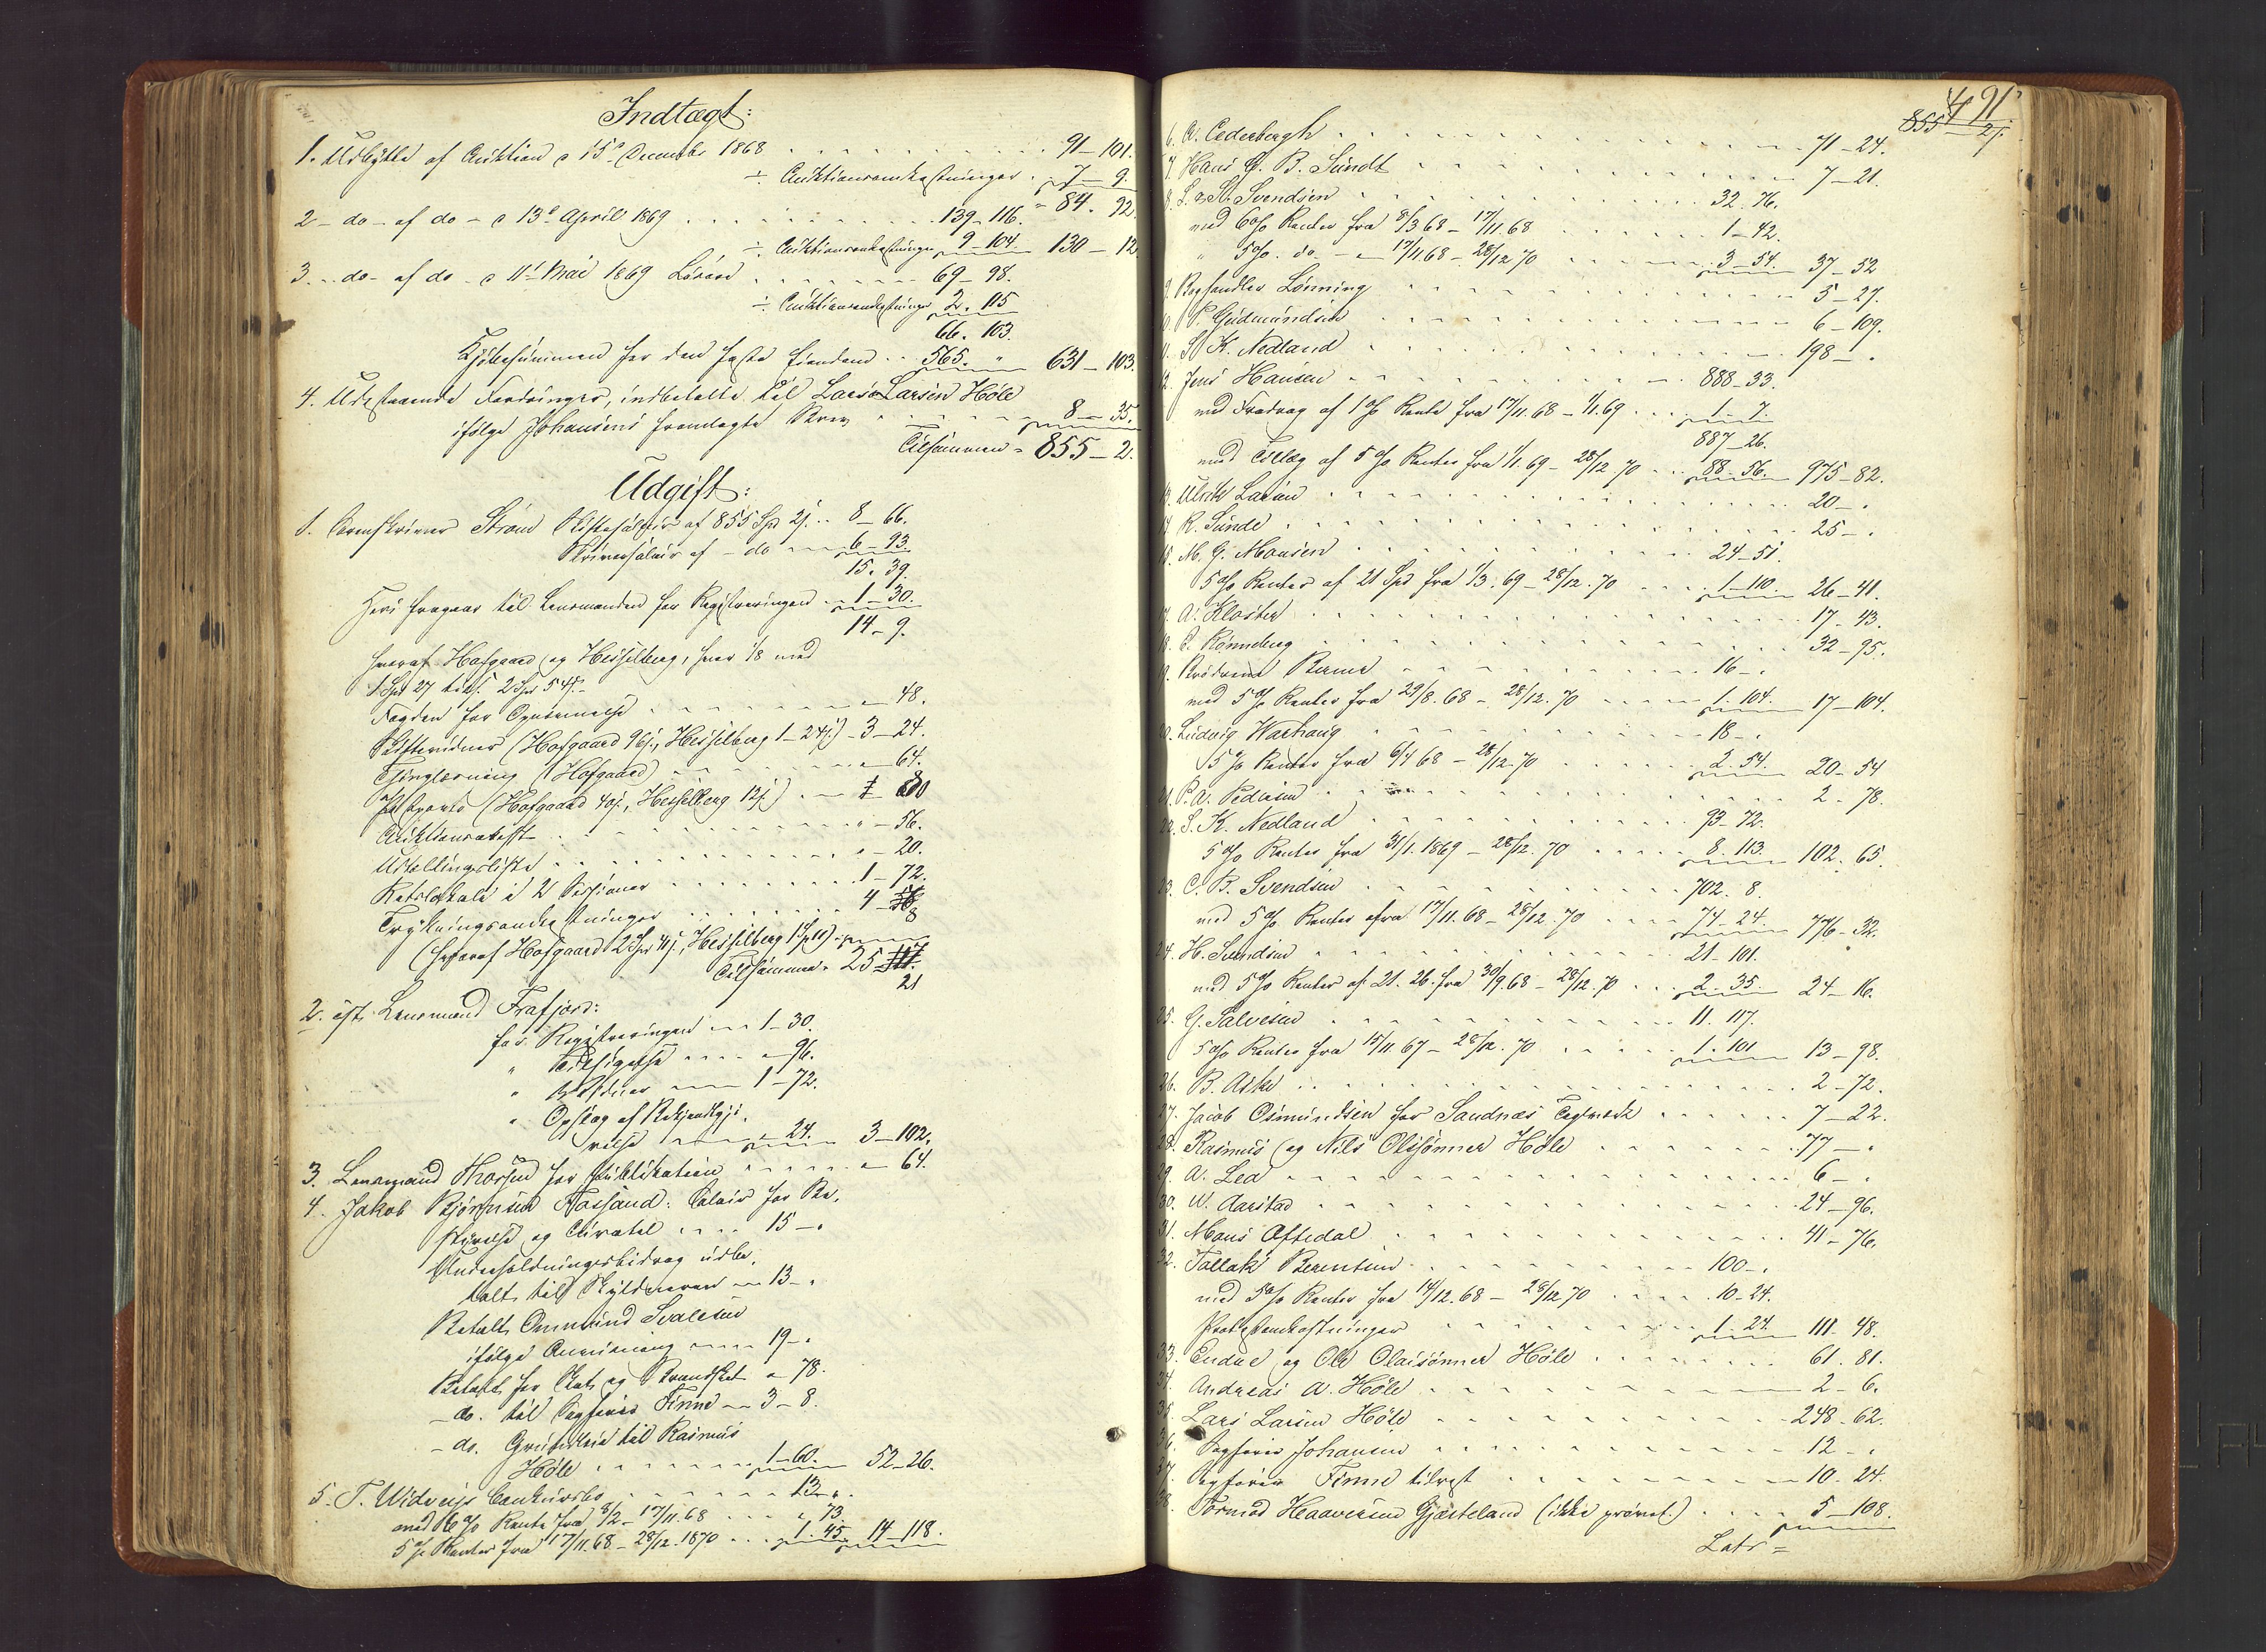 Indtægt:
1. Udbytte af Auktion d 15de December 1868 . . . 91 – 101.
÷ Auktionsomkostninger . 7 – 9.
84. 92.
2 – do – af do – d 13de April 1869 . . . 139 – 116.
÷ Auktionsomkostninger 9 – 104. 130 – 12.
3. – do – af do – d 11te Mai 1869 Løsøre . . . 69 – 98.
÷ Auktionsomkostninger 2. 115
66. 103.
Kjøbesummen for den faste Eiendom . . 565. " 631 – 103.
4. Udestaaende Fordringer, indbetalte til Lars Larsen Høle
ifølge Johansens fremlagte Brev . . . 8 – 35.
Tilsammen = 855 – 2.
Udgift:
1. Sorenskriver Strøm Skiftesalair af 855 Spd 2 s. . . 8 – 66.
Skriversalair af – do – 6 – 93.
15. 39.
Heri fragaar til Lensmanden for Registreringen . . 1 – 30.
14 – 9.
hvoraf Hofgaard og Hesselberg, hver 1/8 med
1 Spd 27 tils. 2 Spd 54 s.
Fogden for Opnævnelse . . . " – 48.
Skiftevidner (Hofgaard 96 s., Hesselberg 1 – 24 s.) – 3 – 24.
Thinglæsning (Hofgaard) . . . " – 64.
Postporto (Hofgaard 40 s., Hesselberg 12 s.)
Auktionsattest . . . " – 56.
Udstillingsliste . . . " – 20.
Retslokale i 2 Sessioner . . . 1 – 72.
Trykningsomkostninger . . . 4 – 8
(hvoraf Hofgaard 2 Spd, Hesselberg 1 Sp)
Tilsammen = 25 21
2. Lensmand Frafjord:
for Registreringen . . . 1 – 30.
" Tilsigelse . . . " – 96.
" Vidner . . . 1 – 72.
" Opslag af Bekjendtgjø-
relse . . . " – 24. 3 – 102.
3. Lensmand Thorsen for Publikation . . . " – 64.
4. Jakob Bjørnsen Fossand: Salair for Be-
styrelse og Curatel . . . 15 – "
Underholdningsbidrag udbe-
talt til Skyldneren – 13 – "
Betalt Ommund Svalesen
ifølge Anvisning . . . 19 – "
Betalt for Skat og Brandskat " 78.
– do. til Sagfører Finne – 3 – 8.
– do. Grundleie til Rasmus
Høle . . . 1 – 60. 52 – 26.
5. T. Widveys Conkursbo . . . 13 – "
med 6 % Rente fra 8/2 – 17/11.68 . . . " 73.
5 % Renter fra 17/11.68 – 28/12.1870 . . . 1. 45. 14 – 118.
491.
855 – 2 s.
6. A. Cederbergh . . . 71 – 24.
7. Hans G. B. Sundt . . . 7 – 21.
8. L. & S. Svendsen . . . 32. 76.
med 6 % Renter fra 8/3 68 – 17/11.68 . . . 1 – 42.
" 5 %. do. – " 17/11.68 – 28/12.70 . . . 3 – 54. 37 – 52
9. Boghandler Lønning . . . 5 – 27.
10. P. Gudmundsen . . . 6 – 109.
11. S. K. Nedland . . . 198 – "
12. Jens Hansen . . . 888 – 33.
med Fradrag af 1 % Rente fra 17/11.68 – 1/1.69 . . . 1 – 7.
887 – 26.
med Tillæg af 5 % Renter fra 1/1.69 – 28/12.70 . . 88 – 56. 975 – 82.
13. Ulrik Larsen . . . 20 – "
14. R. Sunde . . . 25 – "
15. M. G. Monsen . . . 24 – 51.
5 % Renter af 21 Spd fra 1/3.69 – 28/12.70 . . . 1 – 110. 26 – 41.
17. A. Kloster . . . 17 – 43.
18. C. Rønneberg . . . 32 – 95.
19. Brødrene Berner . . . 16 – "
med 5 % Renter fra 29/8.68 – 28/12.70 . . . 1. 104. 17 – 104.
20. Ludvig Warhaug . . . 18 – "
5 % Renter fra 6/4 68 – 28/12.70 . . . 2. 54. 20 – 54
21. P. A. Pedersen . . . 2 – 78.
22. S. K. Nedland . . . 93 – 72.
5 % Renter fra 31/1.1869 – 28/12.70 . . . 8. 113. 102. 65.
23. C. B. Svendsen . . . 702. 8.
med 5 % Renter fra 17/11.68 – 28/12.70 . . . 74 – 24. 776 – 32.
24. H. Svendsen . . . 21 – 101.
med 5 % Renter af 21. 26. fra 30/9.68 – 28/12.70 . . . 2. 35. 24 – 16.
25. G. Salvesen . . . 11. 117.
5 % Renter fra 15/11.67 – 28/12.70 . . . 1. 101 13 – 98.
26. B. Aske . . . 2 – 72.
27. Jacob Osmundsen for Sandnæs Teglværk . . . 7 – 22.
28. Rasmus og Nils Olssønner Høle . . . 77 – "
29. A. Lea . . . 6 – "
30. W. Aarstad . . . 24 – 96.
31. Mons Aftedal . . . 41 – 76.
32. Tollak Berentsen . . . 100 – "
med 5 % Renter fra 14/12.68 – 28/12.70 . . . 10 – 24.
Protestomkostninger . . . 1. 24. 111. 48.
33. Endre og Ole Olaisønner Høle . . . 61. 81.
34. Andreas A. Høle . . . 2 – 6.
35. Lars Larsen Høle . . . 248 – 62.
36. Sagfører Johansen . . . 12 – "
37. Sagfører Finne tilrest . . . 10. 24.
38. Tormod Haaversen Gjæsteland (ikke prøvet.) . . . 5 – 108.
Latr =